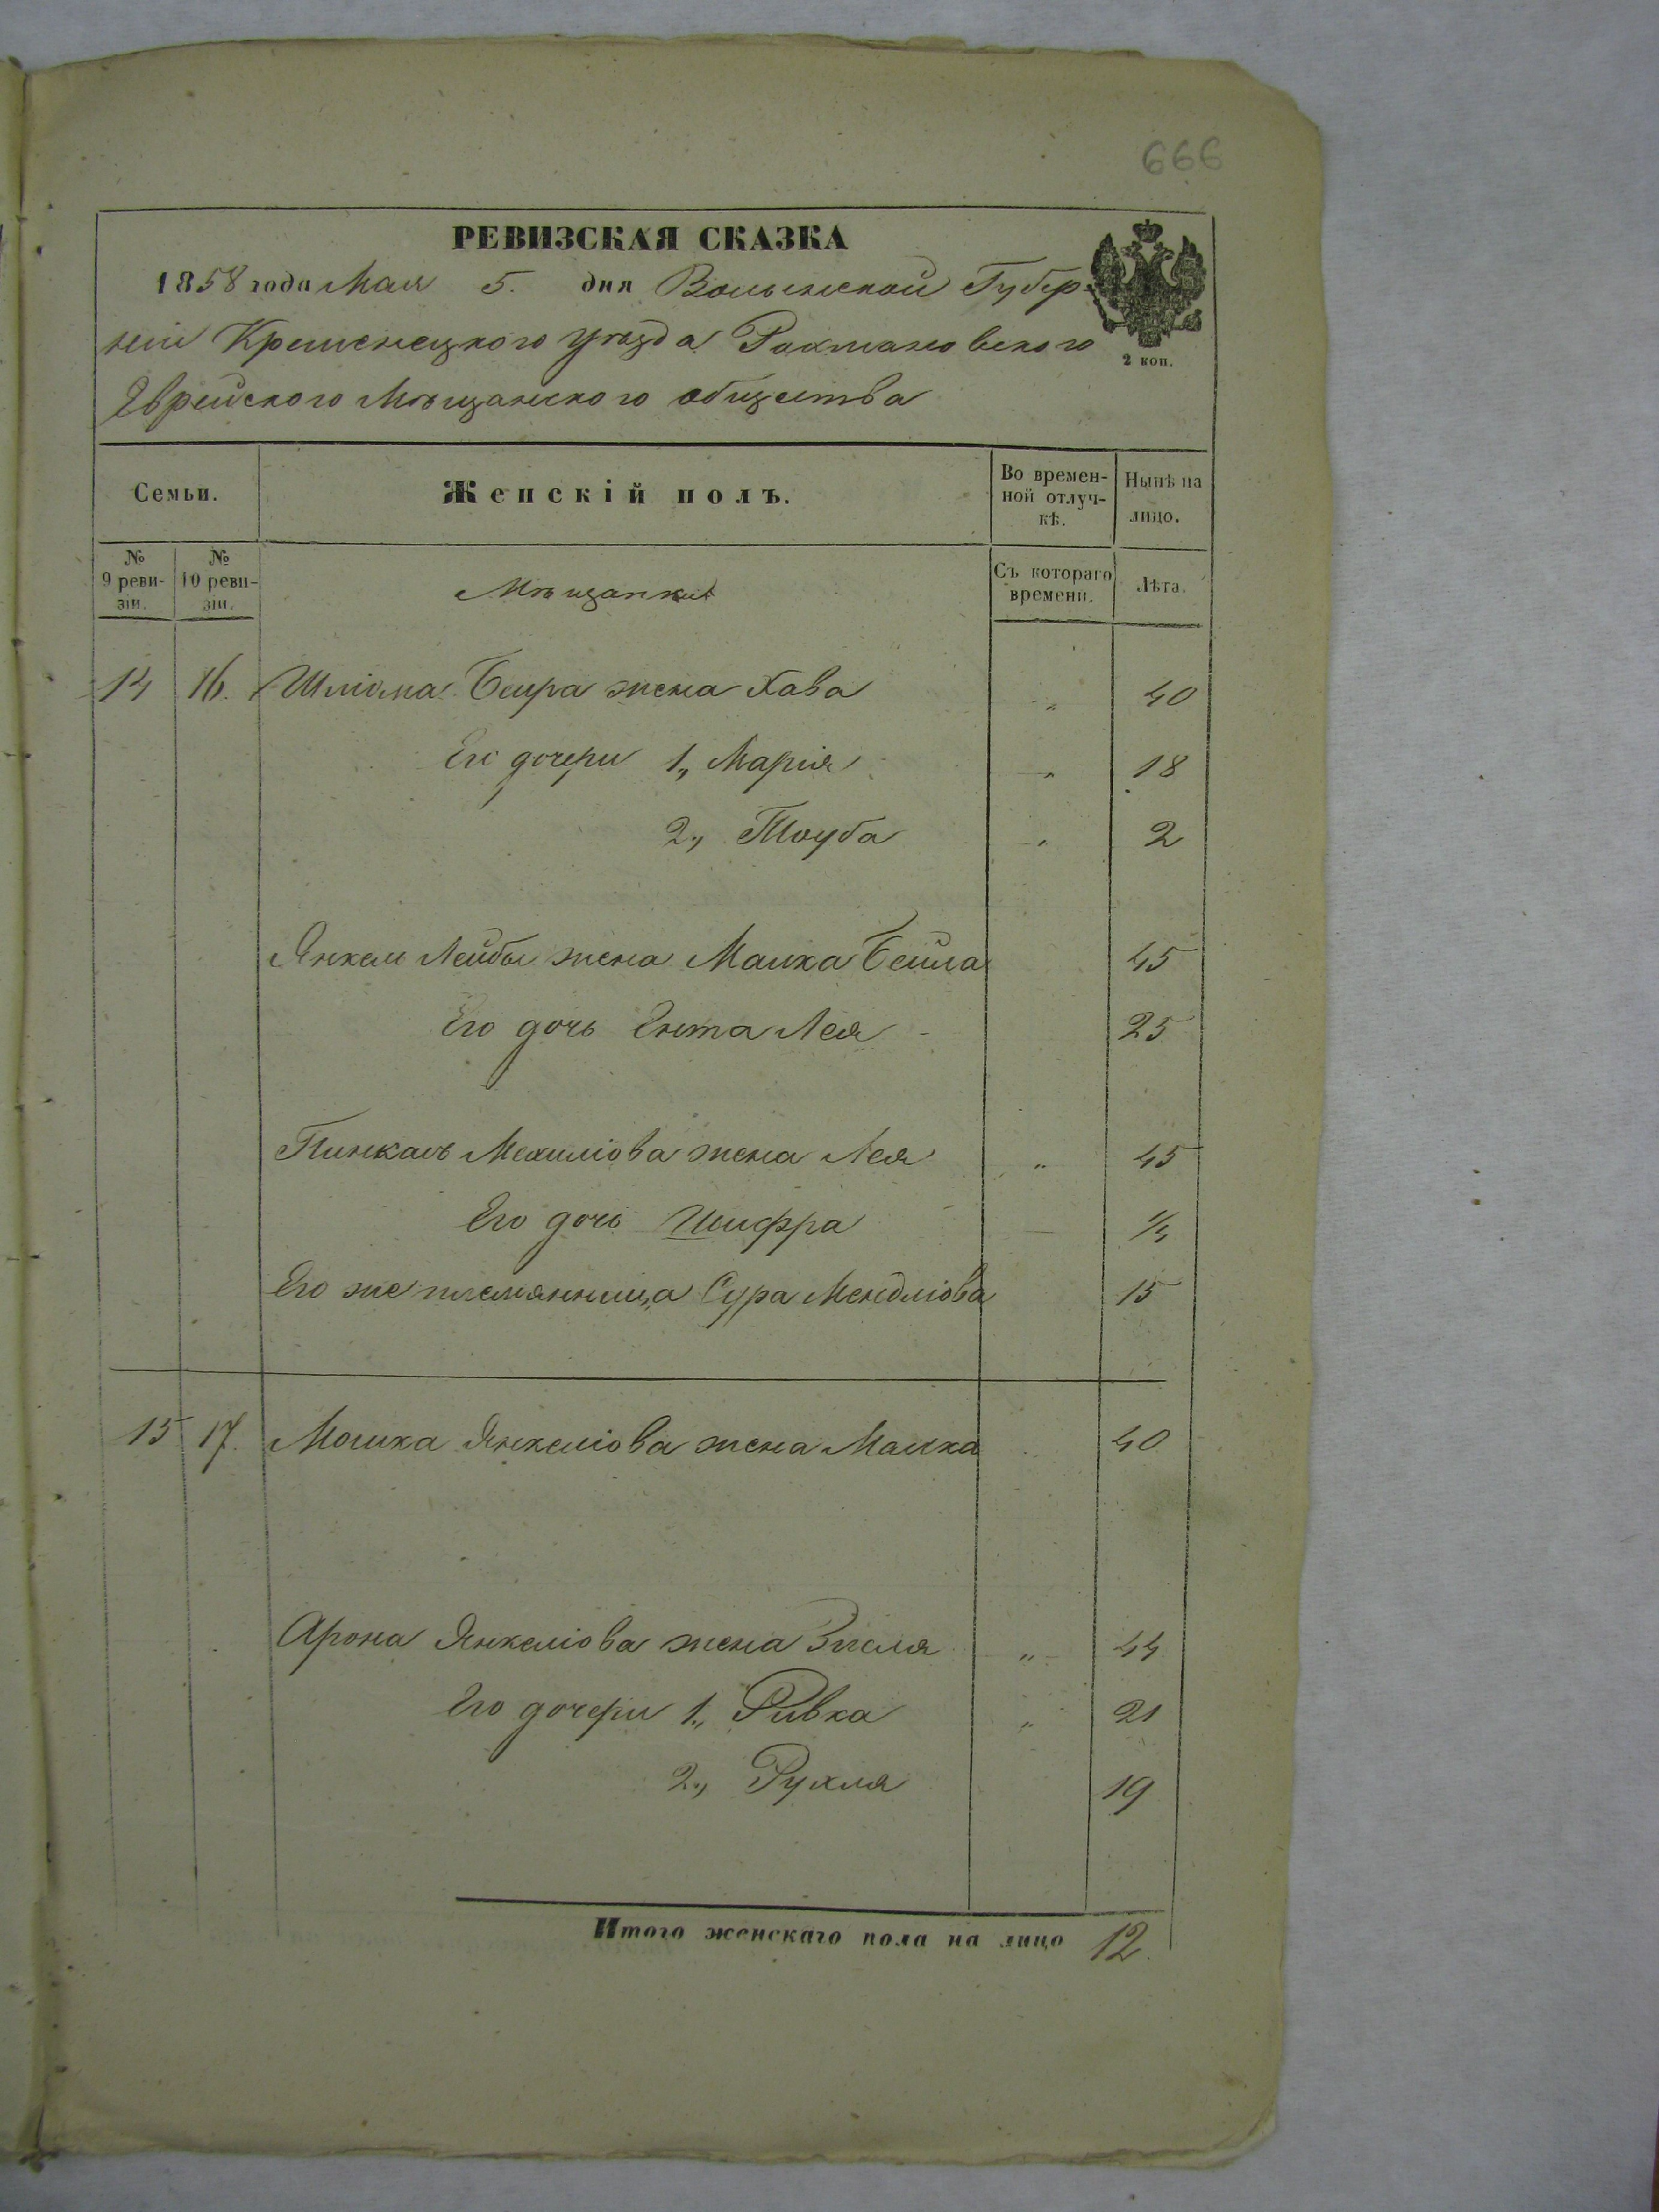 666
РЕВИЗСКАЯ СКАЗКА
1858 года Мая 5. дня Волынской Губер-
ніи Кременецкого Уѣзда Рахмановского
Еврейского Мѣщанского общества
2 коп.
Семьи. Женскій полъ. Во времен-ной отлуч-кѣ. Нынѣ на лицо.
№ 9 реви-зіи. № 10 реви-зіи. Мѣщанки Съ котораго времени. Лѣта.
14 16. Шліома Беира жена Хава " 40
Его дочери 1., Марія " 18
2., Тоуба " 2
Янкел Лейбы жена Малка Бейла 45
Его дочь Ента Лея 25
Пинкаса Мехиліова жена Лея " 45
Его дочь Шифра
Его же племянница Сура Мендліова 15
15 17. Мошка Янкеліова жена Малка 40
Арона Янкеліова жена Зисля " 44
Его дочери 1., Ривка " 21
2., Рухля 19
Итого женскаго пола на лицо 12